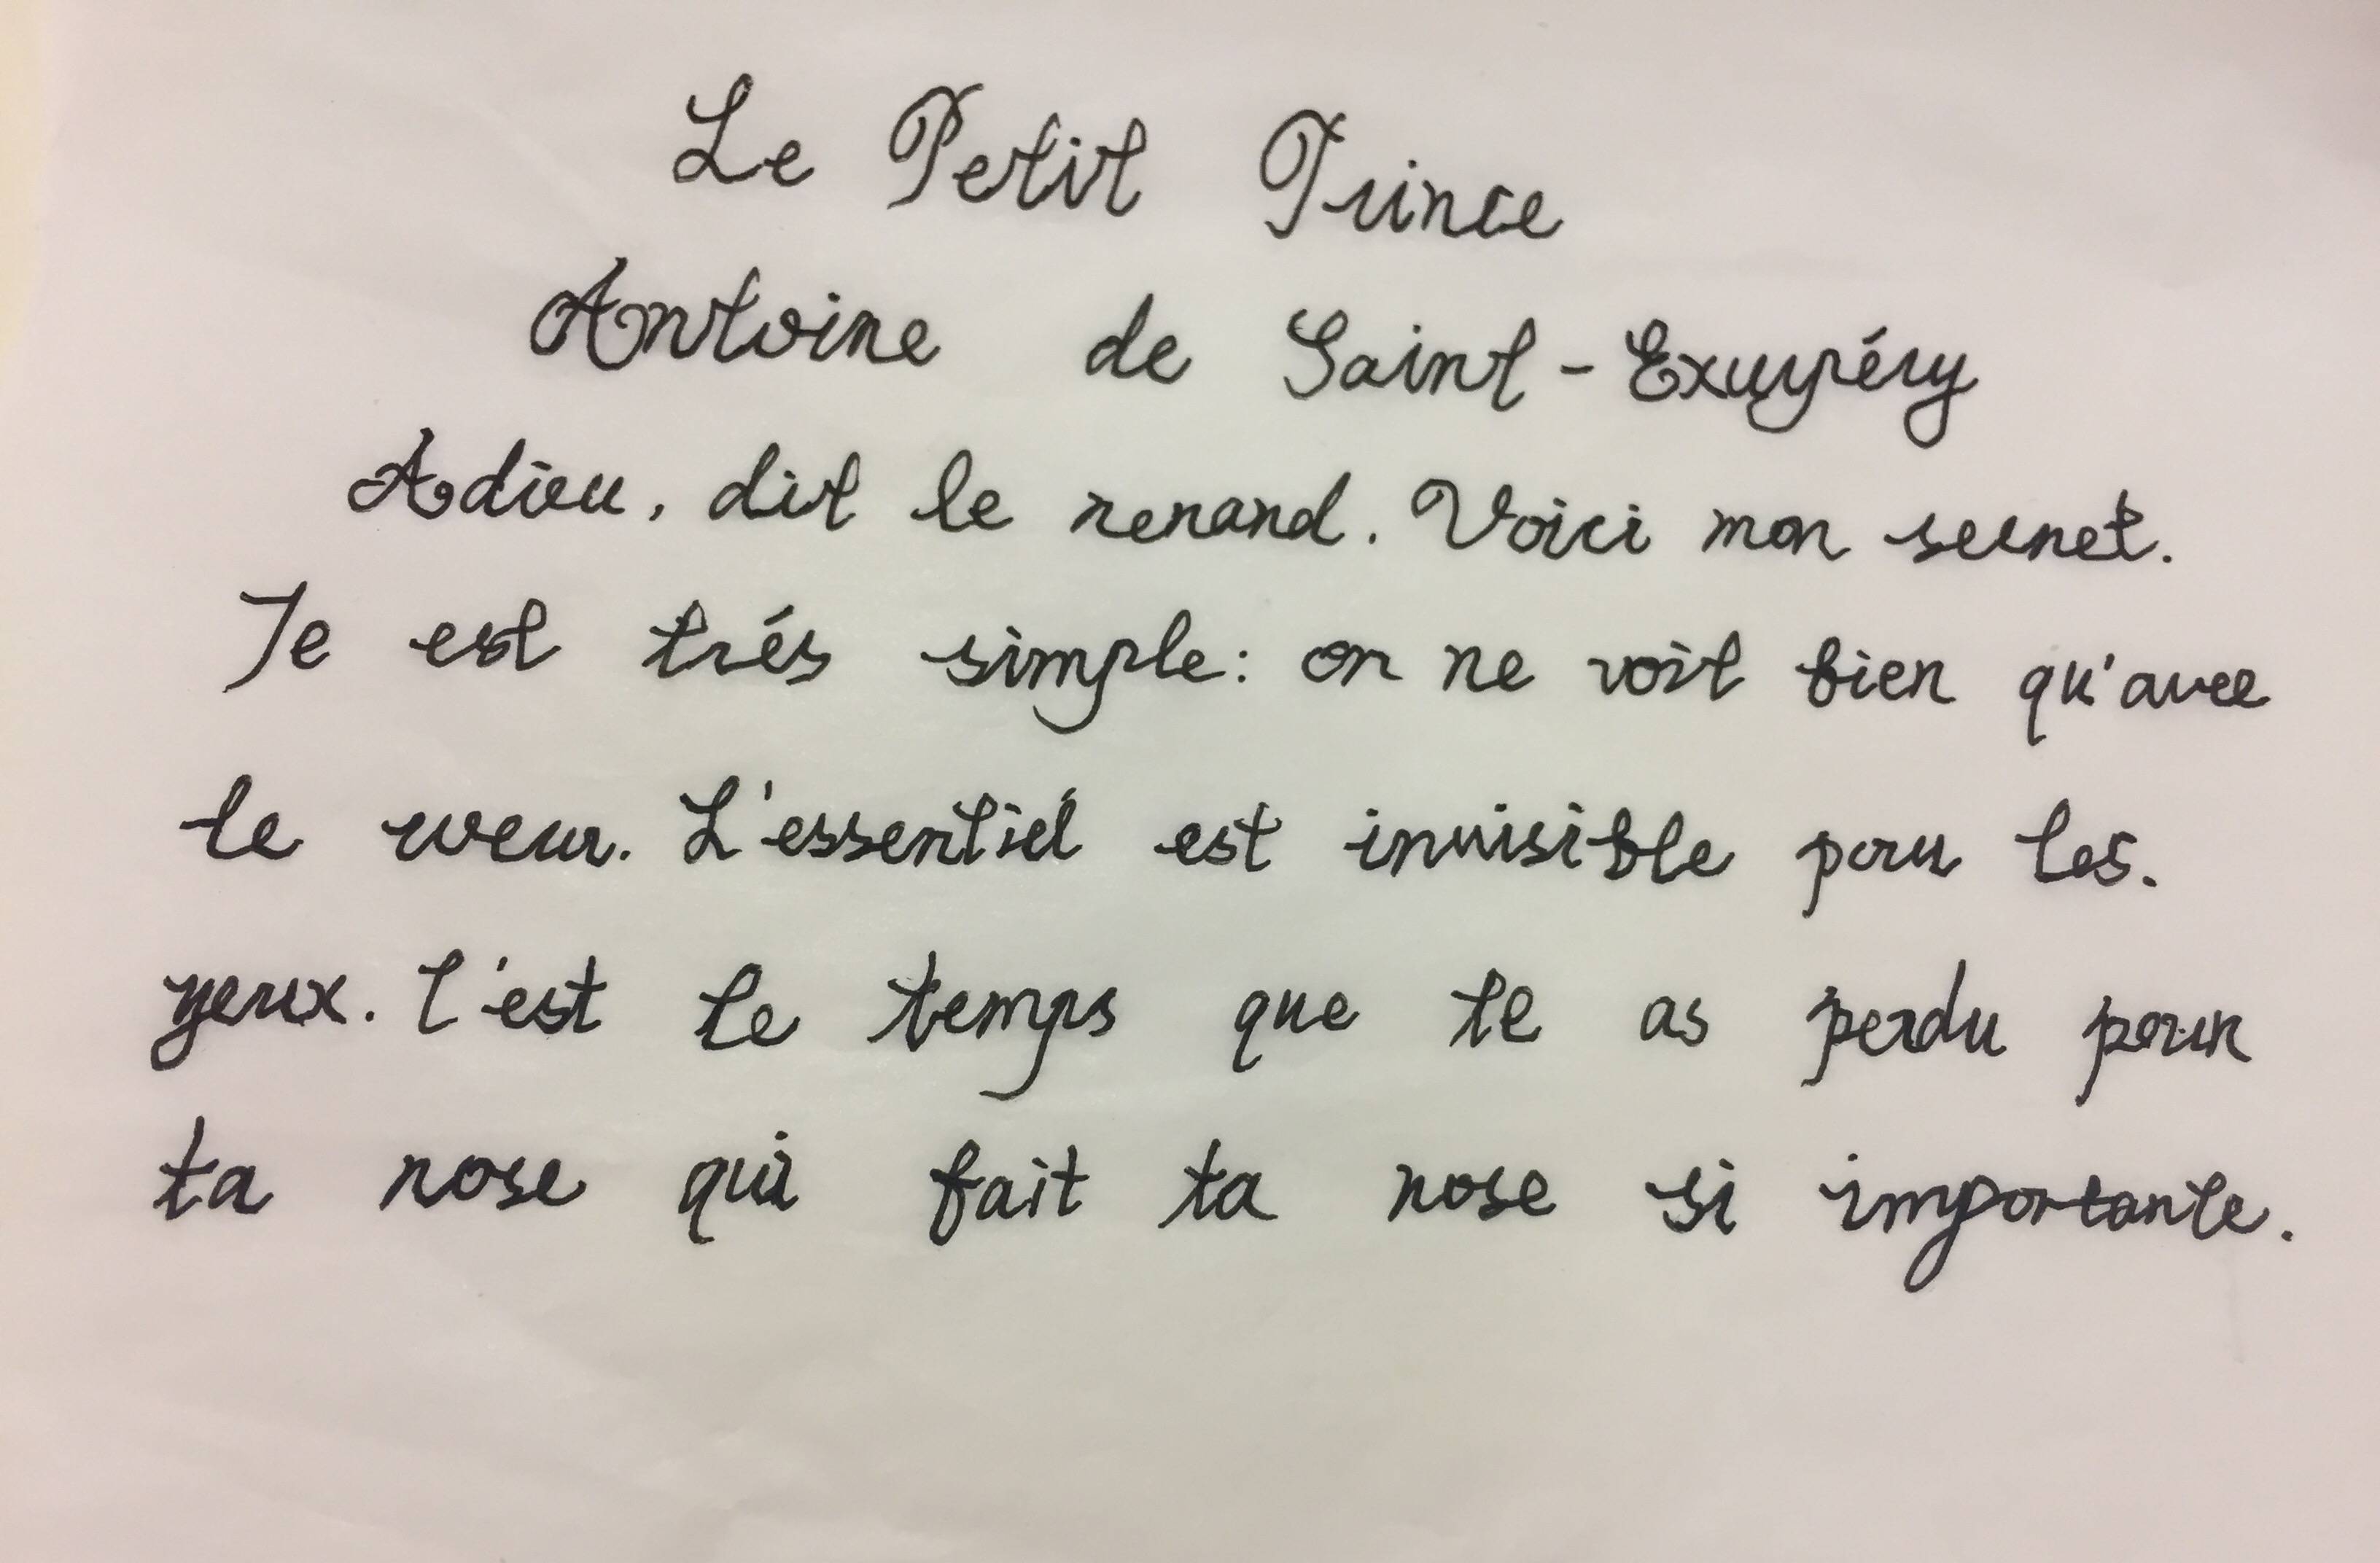 Le Petit Prince
Antoine de Saint-Exupéry
Adieu, dit le renard. Voici mon secret.
Je est trés simple: on ne voit bien qu'avec
le cœur. L'essentiel est invisible pour les.
yeux. C'est le temps que te as perdu pour
ta rose qui fait ta rose si importante.